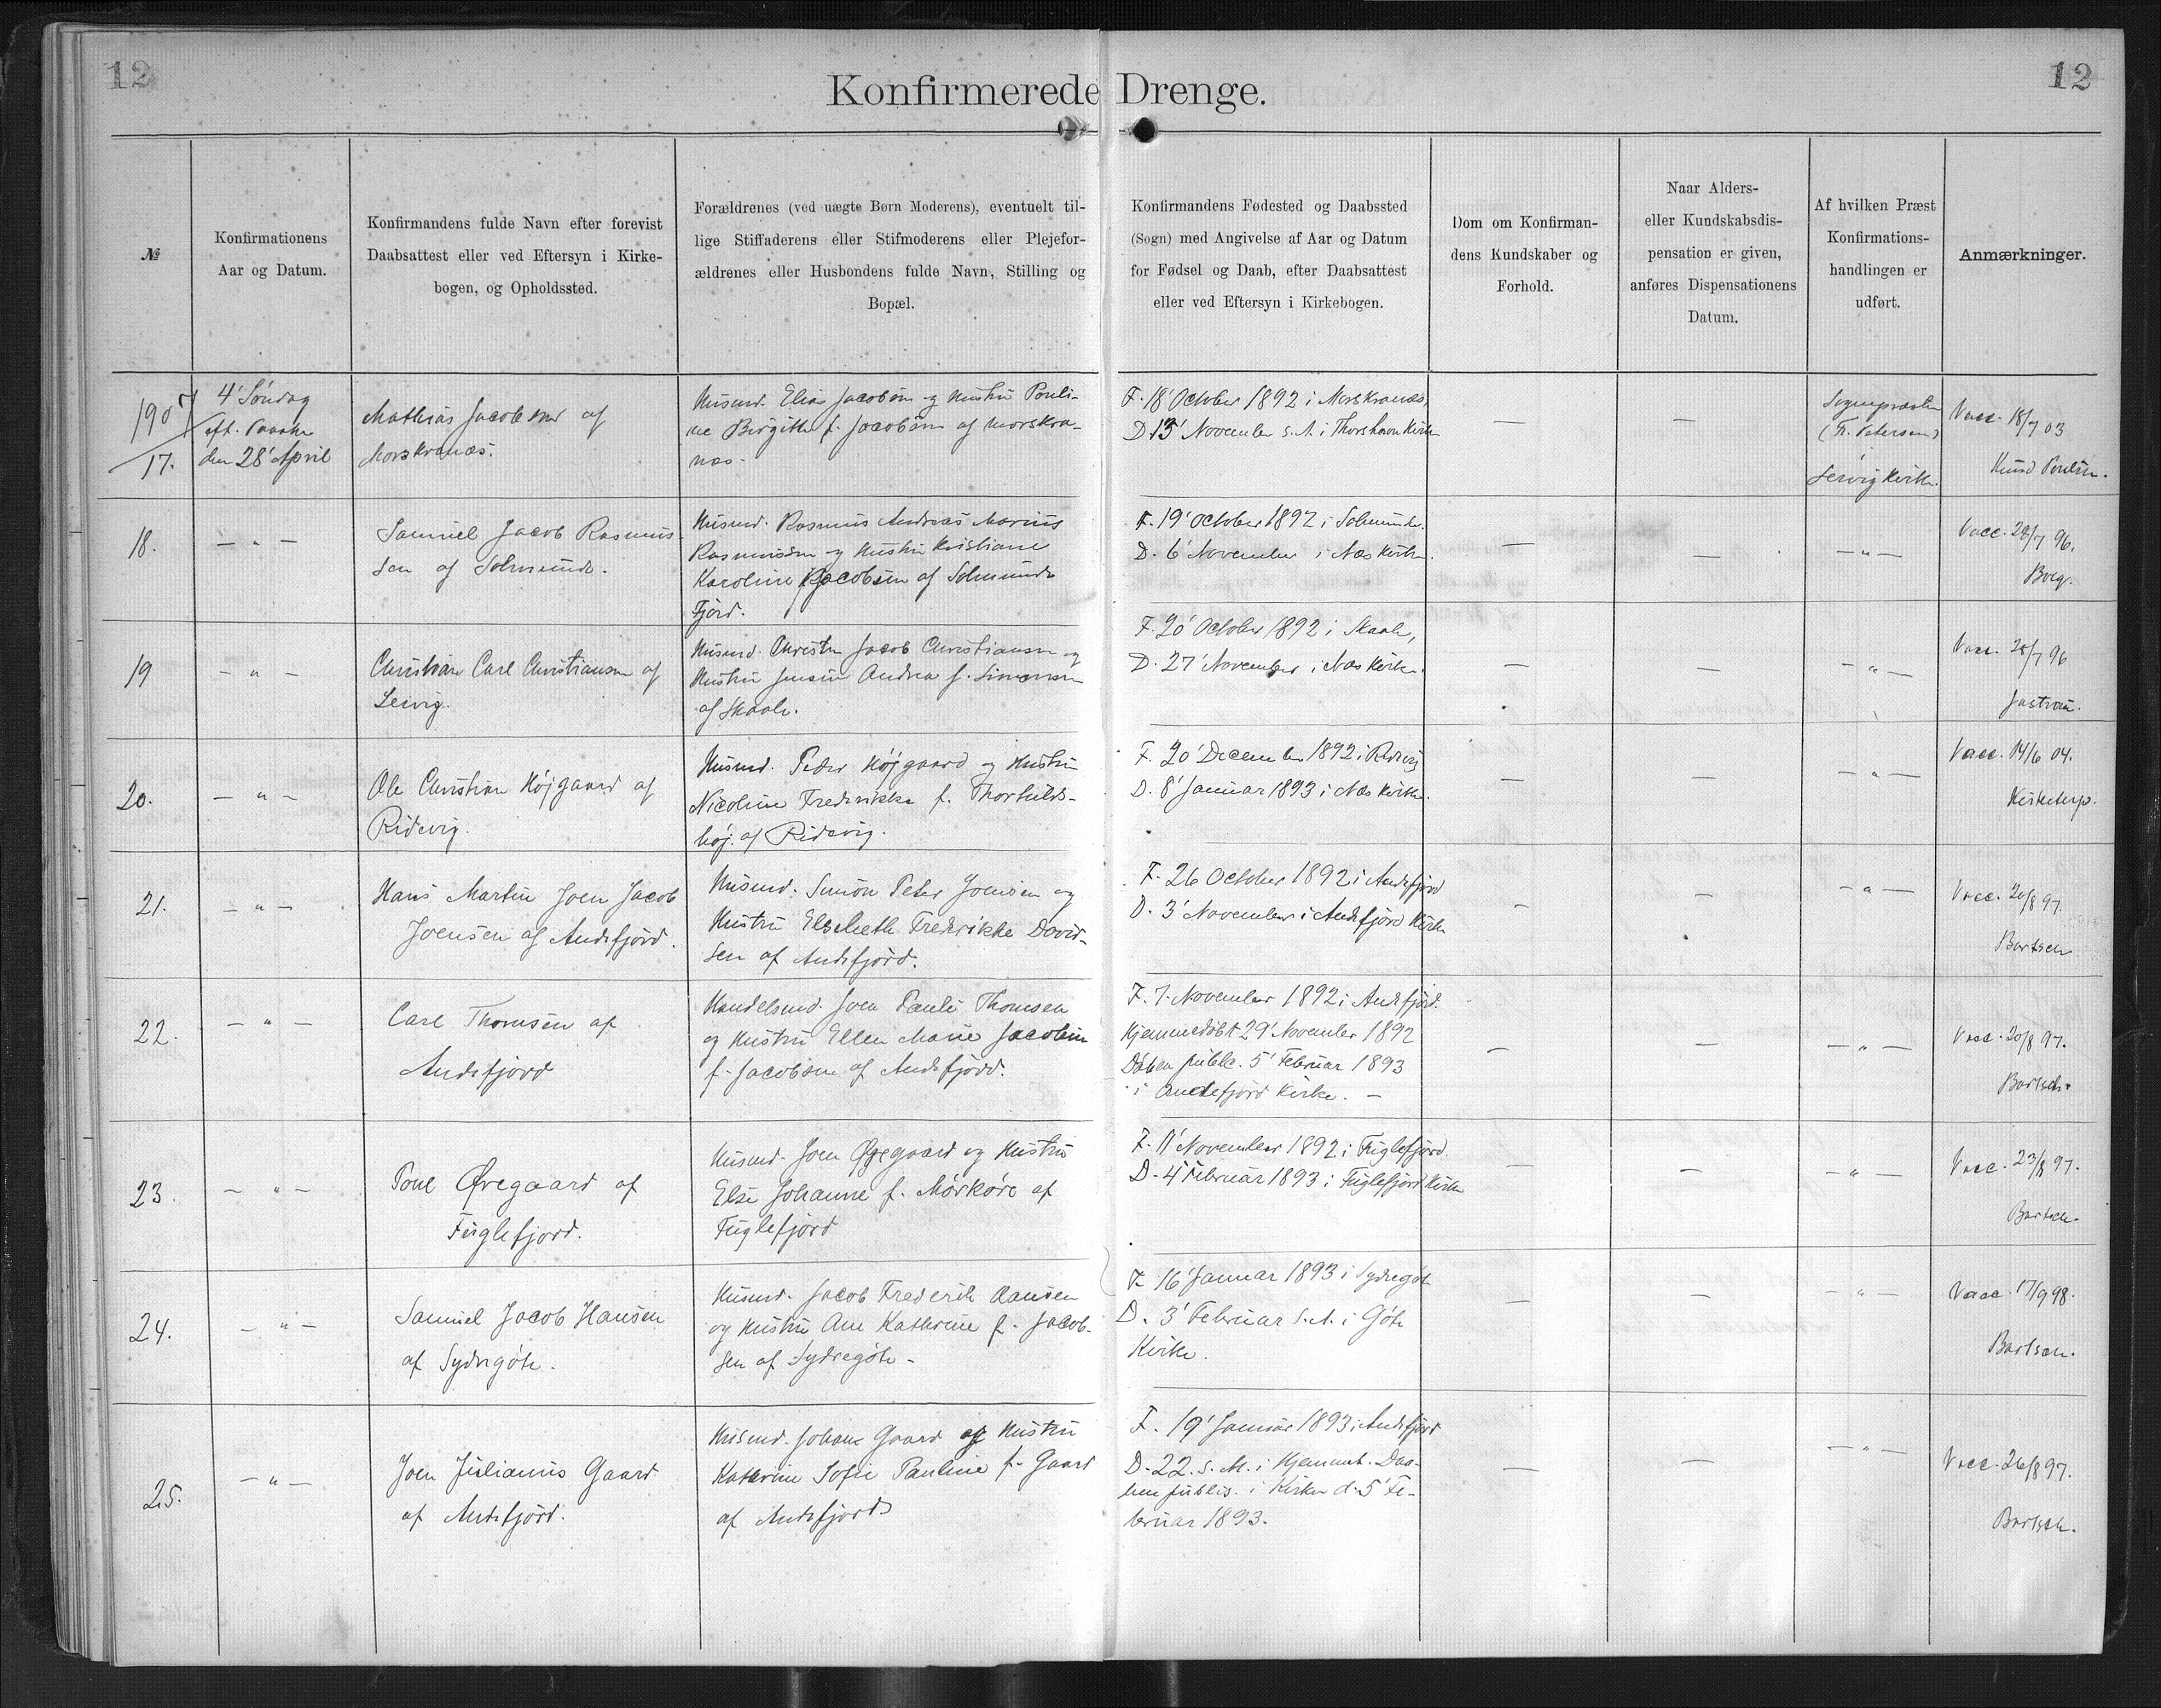 12
12
Konfirmerede Drenge.
№
Konfirmationens
Aar og Datum.
Konfirmandens fulde Navn efter forevist
Daabsattest eller ved Eftersyn i Kirke-
bogen, og Opholdssted.
Forældrenes (ved uægte Børn Moderens), eventuelt til-
lige Stiffaderens eller Stifmoderens eller Plejefor-
ældrenes eller Husbondens fulde Navn, Stilling og
Bopæl.
Konfirmandens Fødested og Daabssted
(Sogn) med Angivelse af Aar og Datum
for Fødsel og Daab, efter Daabsattest
eller ved Eftersyn i Kirkebogen.
Dom om Konfirman-
dens Kundskaber og
Forhold.
Naar Alders-
eller Kundskabsdis-
pensation er given,
anføres Dispensationens
Datum.
Af hvilken Præst
Konfirmations-
handlingen er
udført.
Anmærkninger.
1907
17.
4' Söndag
eft. Paaske
den 28' April
Mathias Jacobsen af
Morskranæs.
Husmd. Elias Jacobsen og Hustru Pouli-
ne Birgithe f. Jacobsen af Morskra-
næs.
F. 18' October 1892 i Morskranæs,
D. 13' November s. A. i Thorshavn Kirke
—
—
Sognepræsten
(Fr. Petersen)
i
Leirvig Kirke.
Vacc. 18/7 03
Knud Poulsen.
18.
— " —
Samuel Jacob Rasmus-
sen af Solmunde.
Husmd. Rasmus Andreas Marius
Rasmussen og Hustru Kristiane
Karoline f. Jacobsen af Solmunde
Fjord.
F. 19' October 1892 i Solmunde.
D. 6' November i Næs Kirke.
—
—
— " —
Vacc. 28/7 96.
Borg.
19
— " —
Christian Carl Christiansen af
Leirvig.
Husmd. Christen Jacob Christiansen og
Hustru Jensine Andrea f. Simonsen
af Skaale.
F. 20' October 1892 i Skaale,
D. 27' November i Næs Kirke.
—
—
— " —
Vacc. 28/7 96
Jastrau.
20.
— " —
Ole Christian Højgaard af
Ridevig.
Husmd. Peder Højgaard og Hustru
Nicoline Frederikke f. Thorkilds-
høj af Ridevig.
F. 20' December 1892 i Ridevig
D. 8' Januar 1893 i Næs Kirke.
—
—
— " —
Vacc. 14/6 04.
Kirketerp.
21.
— " —
Hans Martin Joen Jacob
Joensen af Andefjord.
Husmd. Simon Peter Joensen og
Hustru Elsebeth Frederikke David-
sen af Andefjord.
F. 26 October 1892 i Andefjord
D. 3' November i Andefjord Kirke
—
—
— " —
Vacc. 20/8 97.
Bartsch
22.
— " —
Carl Thomsen af
Andefjord
Handelsmd. Joen Pauli Thomsen
og Hustru Ellen Marie Jacobine
f. Jacobsen af Andefjord.
F. 7. November 1892 i Andefjord.
Hjemmedöbt 29' November 1892
Daaben public. 5' Februar 1893
i Andefjord Kirke. —
—
—
— " —
Vacc. 20/8 97.
Bartsch.
23.
— " —
Poul Øregaard af
Fuglefjord.
Husmd. Joen Øregaard og Hustru
Else Johanne f. Mörköre af
Fuglefjord
F. 11' November 1892 i Fuglefjord.
D. 4' Februar 1893 i Fuglefjord Kirke
—
—
— " —
Vacc. 23/8 97.
Bartsch.
24.
— " —
Samuel Jacob Hansen
af Sydregöte.
Husmd. Jacob Frederik Hansen
og Hustru Ane Kathrine f. Jacob-
sen af Sydregöte.
F. 16' Januar 1893 i Sydregöte
D. 3' Februar s. A. i Göte
Kirke.
—
—
— " —
Vacc. 17/9 98.
Bartsch.
25.
— " —
Joen Julianus Gaard
af Andefjord.
Husmd. Johans Gaard og Hustru
Kathrine Sofie Pauline f. Gaard
af Andefjord
F. 19' Januar 1893 i Andefjord
D. 22. s. M. i Hjemmet. Daa-
ben publis. i Kirken d. 5' Fe-
bruar 1893.
—
—
— " —
Vacc. 26/8 97.
Bartsch.